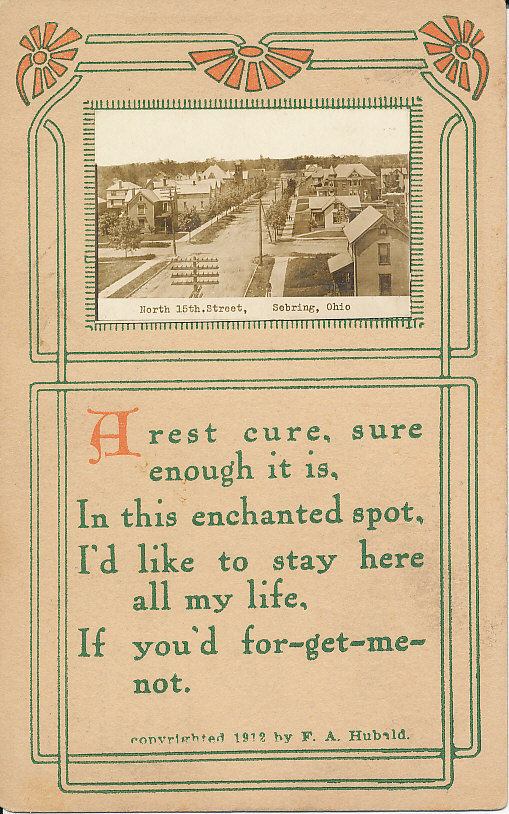 North 15th.Street, Sebring, Ohio
A rest cure, sure
enough it is,
In this enchanted spot,
I'd like to stay here
all my life,
If you'd for-get-me-
not.
copyrighted 1912 by F. A. Hubald.